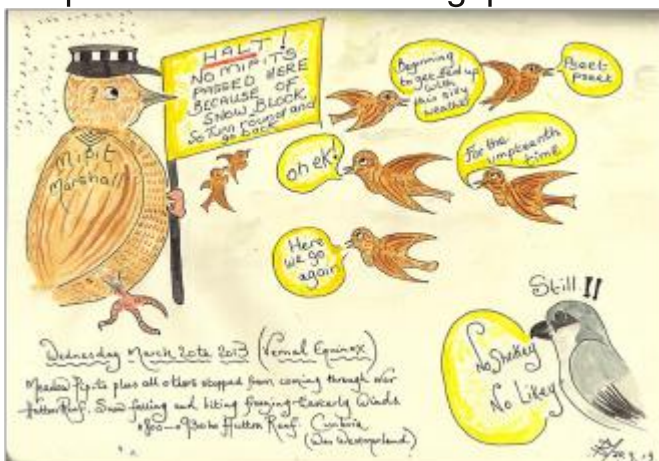 HALT!
NO MIPITS
PASSED HERE
BECAUSE OF
SNOW BLOCK
So Turn round and
go back
Mipit
Marshall
Beginning
to get fed up
with
this silly
weather
Pseet-
pseet
oh ek!
For the
umpteenth
time
Here
we go
again
Still !!
No Shrikey
No Likey
Wednesday March 20th 2013 (Vernal Equinox)
Meadow Pipits plus all others stopped from coming through over
Hutton Roof. Snow falling and biting freezing Easterly Winds
0800-0930hs Hutton Roof. Cumbria
(Was Westmorland)